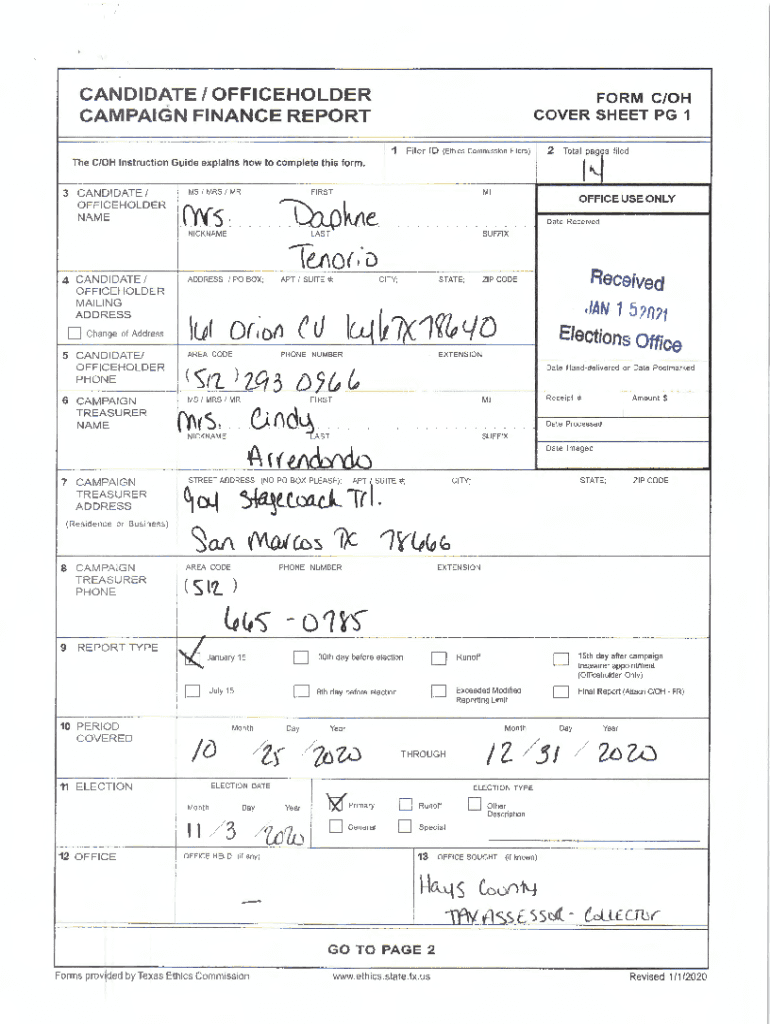 CANDIDATE / OFFICEHOLDER
CAMPAIGN FINANCE REPORT
FORM C/OH
COVER SHEET PG 1
The C/OH Instruction Guide explains how to complete this form.
1 Filer ID (Ethics Commission Filers)
2 Total pages filed
14
3 CANDIDATE / OFFICEHOLDER NAME
MS / MRS / MR FIRST MI
Mrs. Daphne
NICKNAME LAST SUFFIX
Tenorio
OFFICE USE ONLY
Date Received
Received
JAN 15 2021
Elections Office
4 CANDIDATE / OFFICEHOLDER MAILING ADDRESS
Change of Address
ADDRESS / PO BOX; APT / SUITE #; CITY; STATE; ZIP CODE
161 Orion CV Kyle TX 78640
5 CANDIDATE/ OFFICEHOLDER PHONE
AREA CODE PHONE NUMBER EXTENSION
(512) 293 0966
Date Hand-delivered or Date Postmarked
6 CAMPAIGN TREASURER NAME
MS / MRS / MR FIRST MI
Mrs. Cindy
NICKNAME LAST SUFFIX
Arrendondo
Receipt # Amount $
Date Processed
Date Imaged
7 CAMPAIGN TREASURER ADDRESS
(Residence or Business)
STREET ADDRESS (NO PO BOX PLEASE); APT / SUITE #; CITY; STATE; ZIP CODE
904 Stagecoach Trl.
San Marcos TX 78666
8 CAMPAIGN TREASURER PHONE
AREA CODE PHONE NUMBER EXTENSION
(512)
665 - 0785
9 REPORT TYPE
January 15
30th day before election
Runoff
15th day after campaign treasurer appointment (Officeholder Only)
July 15
8th day before election
Exceeded Modified Reporting Limit
Final Report (Attach C/OH - FR)
10 PERIOD COVERED
Month Day Year
10 / 25 / 2020
THROUGH
Month Day Year
12 / 31 / 2020
11 ELECTION
ELECTION DATE
Month Day Year
11 / 3 / 2020
ELECTION TYPE
Primary
Runoff
Other Description
General
Special
12 OFFICE
OFFICE HELD (if any)
—
13 OFFICE SOUGHT (if known)
Hays County
TAX ASSESSOR - COLLECTOR
GO TO PAGE 2
Forms provided by Texas Ethics Commission
www.ethics.state.tx.us
Revised 1/1/2020